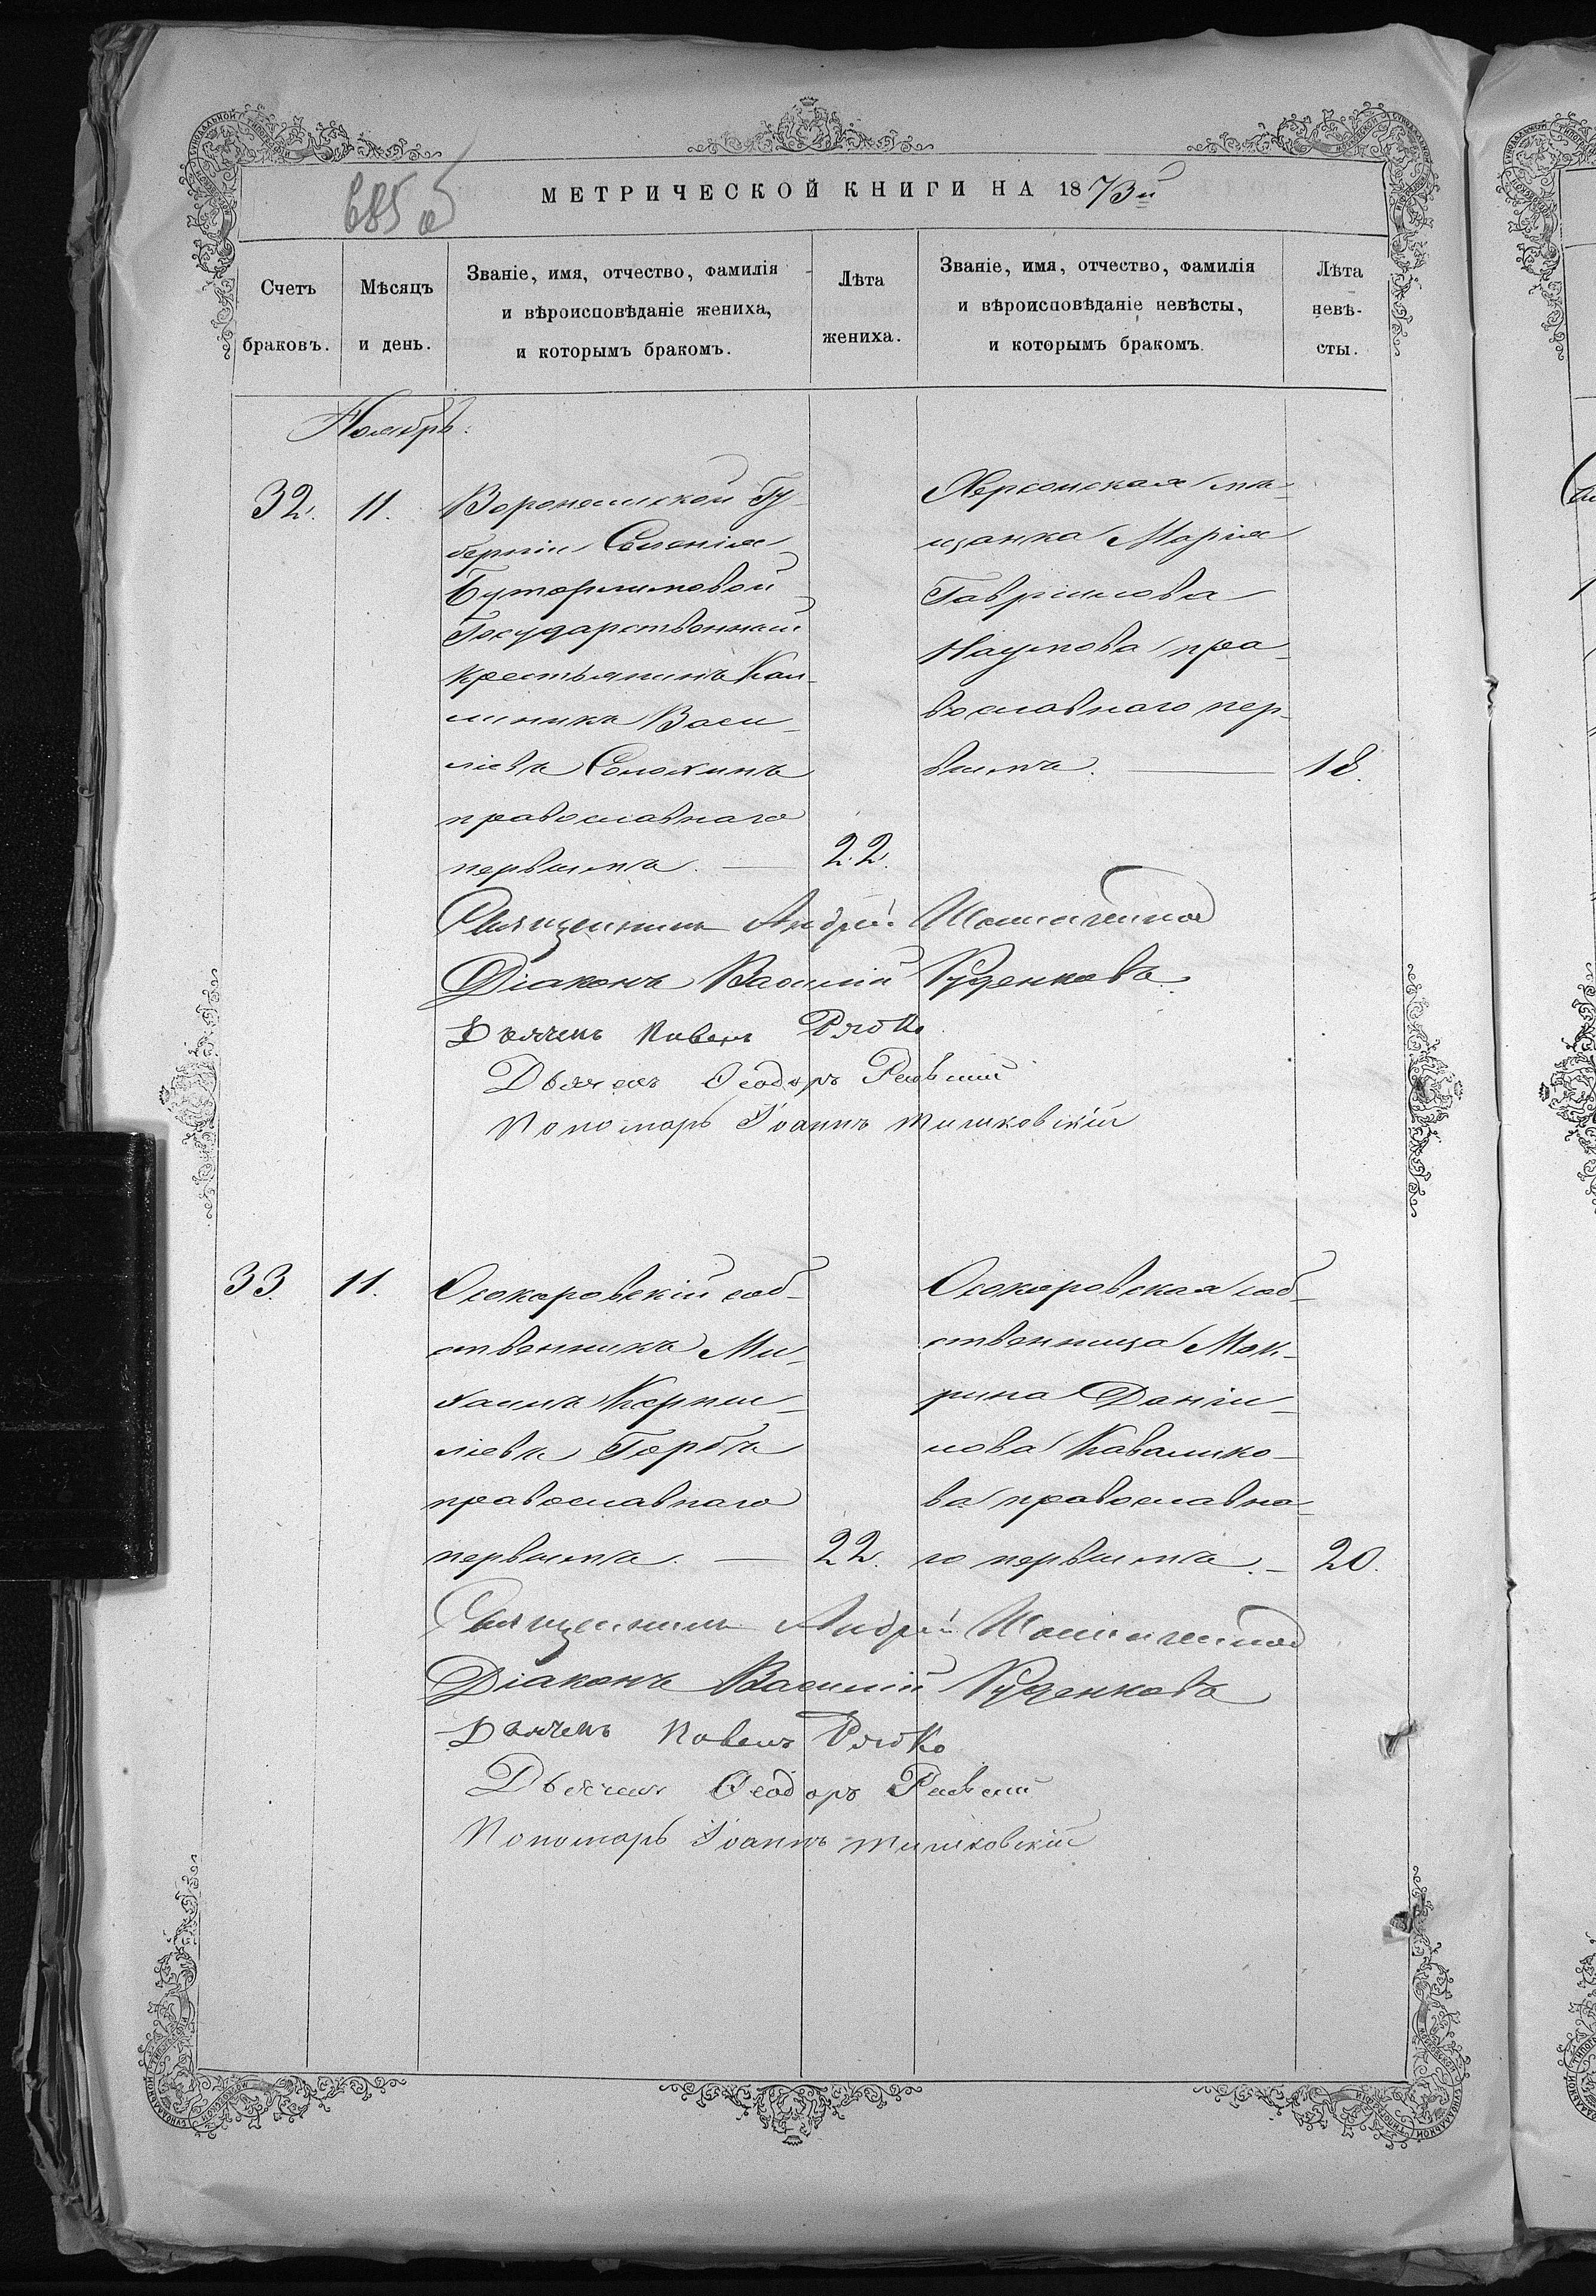 685 об
МЕТРИЧЕСКОЙ КНИГИ НА 1873й
Счетъ браковъ.
Мѣсяцъ и день.
Званіе, имя, отчество, фамилія
и вѣроисповѣданіе жениха,
и которымъ бракомъ.
Лѣта жениха.
Званіе, имя, отчество, фамилія
и вѣроисповѣданіе невѣсты,
и которымъ бракомъ.
Лѣта невѣ-
сты.
Ноябрь.
32. 11.
Воронежской Гу-
берніи Селенія
Бутурлиновой
Государственный
крестьянинъ Кал-
линикъ Васи-
ліевъ Солохинъ
православнаго
первымъ. — 22.
Херсонская мѣ-
щанка Марія
Гавриилова
Наумова пра-
вославнаго пер-
вымъ. — 18.
Священникъ Андрей
Діаконъ Василій Руденковъ
Дьячекъ Павелъ Рябко
Дьячекъ Ѳеодоръ Раевскій
Пономарь Іоаннъ Мишковскій
33. 11.
Осокоровскій соб-
ственникъ Ми-
хаилъ Корни-
ліевъ Горбъ
православнаго
первымъ. — 22.
Осокоровская соб-
ственница Мак-
рина Даніи-
лова Ковалико-
ва православна-
го первымъ. — 20.
Священникъ Андрей
Діаконъ Василій Руденковъ
Дьячекъ Павелъ Рябко
Дьячекъ Ѳеодоръ Раевскій
Пономарь Іоаннъ Мишковскій